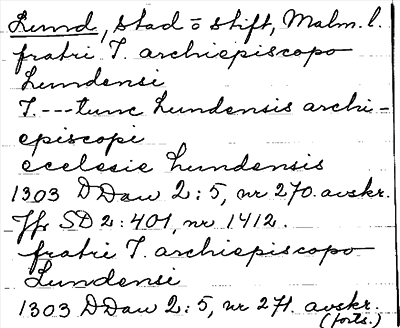 Lund, stad o stift, Malm. l.
fratri T. archiepiscopo
Lundensi
T. --- tunc Lundensis archi-
episcopi
ecclesie Lundensis
1303 DDan 2:5, nr 270. avskr.
Jfr SD 2:401, nr 1412.
fratri T. archiepiscopo
Lundensi
1303 DDan 2:5, nr 271. avskr.
(forts.)